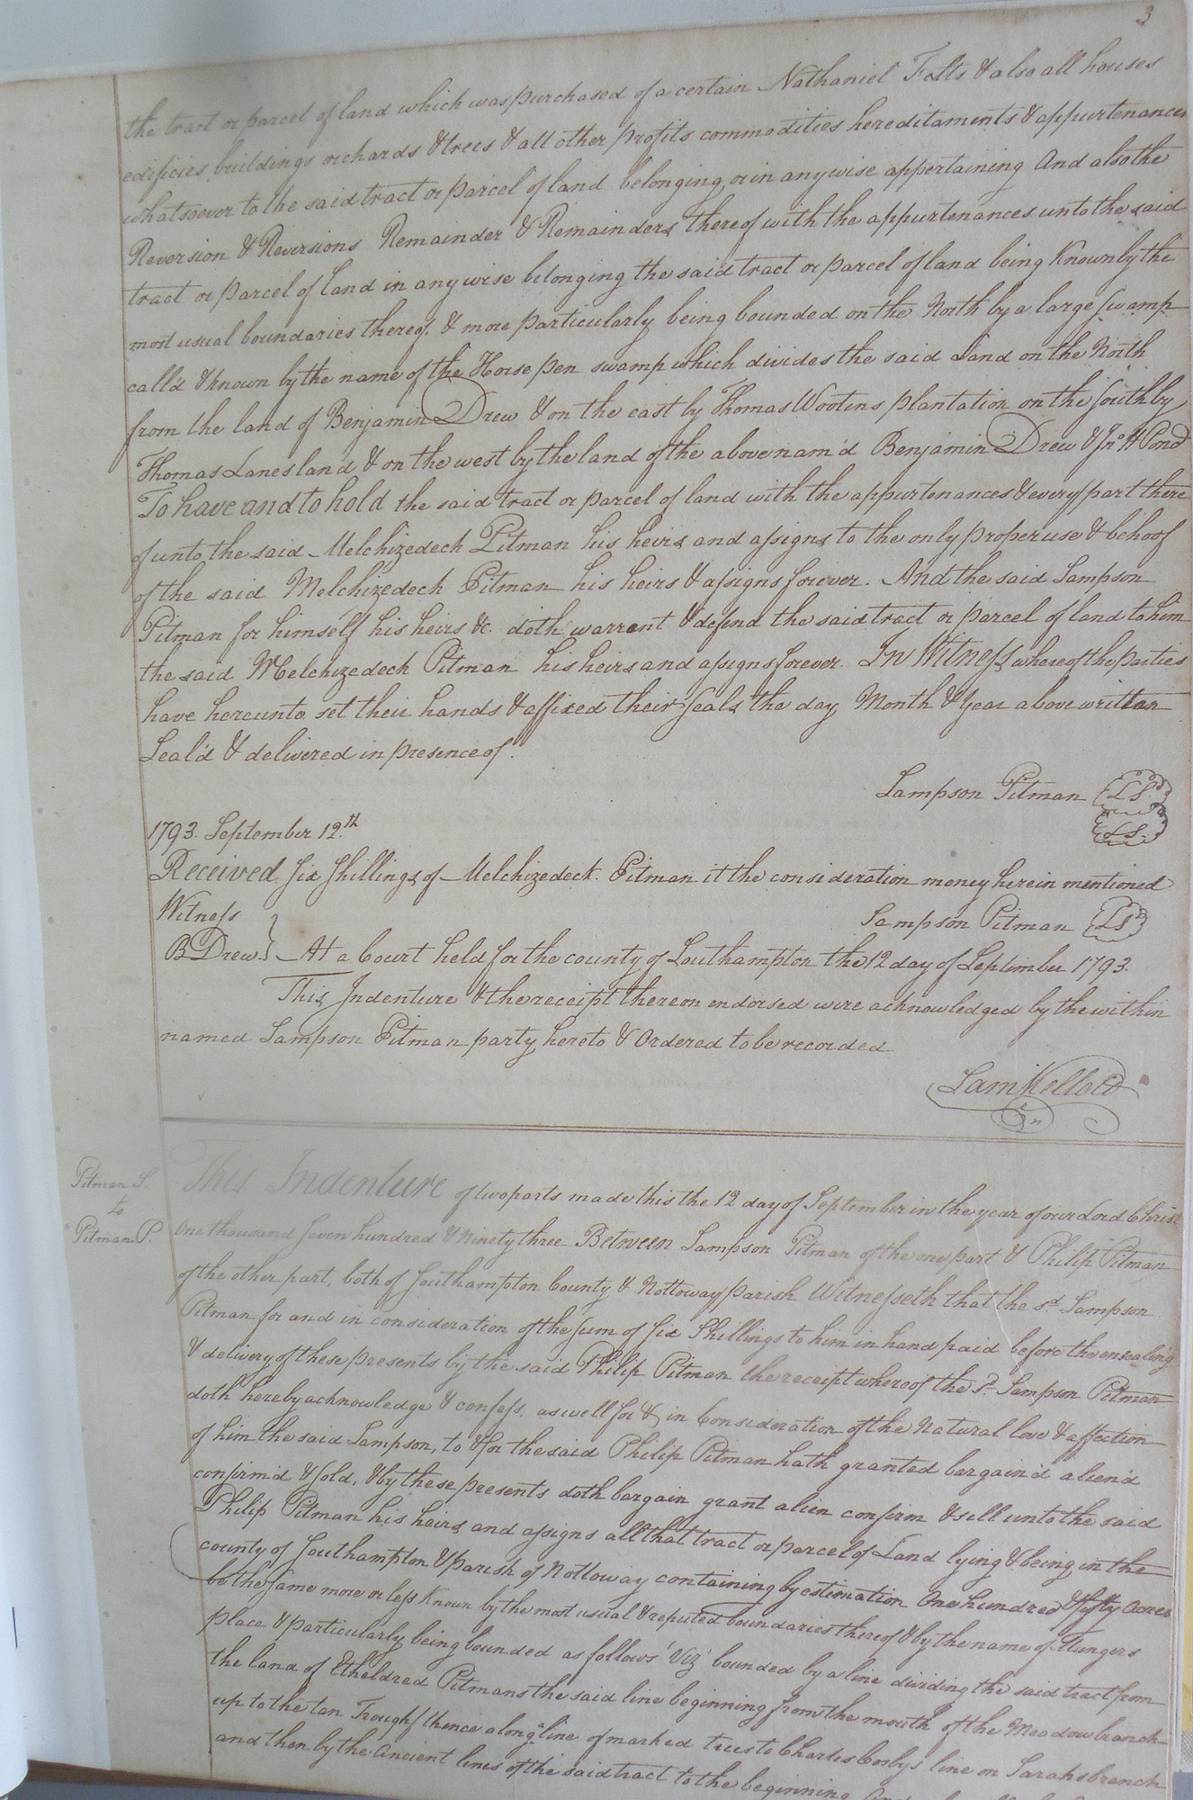 3
the tract or parcel of land which was purchased of a certain Nathaniel Felts & also all houses
edificies buildings orchards & trees & all other profits commodities hereditaments & appurtenances
whatsoever to the said tract or parcel of land belonging or in any wise appertaining And also the
Reversion & Reversions Remainder & Remainders thereof with the appurtenances unto the said
tract or parcel of land in any wise belonging the said tract or parcel of land being Known by the
most usual boundaries thereof. & more particularly being bounded on the North by a large swamp
call'd & known by the name of the Horse pen swamp which divides the said Land on the North
from the land of Benjamin Drew & on the east by Thomas Wootens plantation on the south by
Thomas Lanes land & on the west by the land of the above nam'd Benjamin Drew & Jno. H Pond
To have and to hold the said tract or parcel of land with the appurtenances & every part there
of unto the said Melchizedech Pitman his heirs and assigns to the only proper use & behoof
of the said Melchizedech Pitman his heirs & assigns forever. And the said Sampson
Pitman for himself his heirs &c. doth warrent & defend the said tract or parcel of land to him
the said Melchizedech Pitman his heirs and assigns forever. In Witness, whereof the parties
have hereunto set their hands & affixed their Seals the day Month & Year above written
Seal'd & delivered in presence of.
Sampson Pitman LS
LS
1793. September 12.th
Received six shillings of Melchizedeck Pitman it the consideration money herein mentioned
Witness
Sampson Pitman LS
B Drew } At a Court held for the county of Southampton the 12 day of September 1793.
This Indenture & the receipt thereon endorsed were acknowledged by the within
named Sampson Pitman party hereto & Ordered to be recorded
Sam Kello CC
Pitman S.
to
Pitman P.
This Indenture of two parts made this the 12 day of September in the year of our Lord Christ
One thousand seven hundred & Ninety three Between Sampson Pitman of the one part & Philip Pitman
of the other part, both of Southampton County & Nottoway parish Witnesseth that the sd. Sampson
Pitman for and in consideration of the sum of six Shillings to him in hand paid before the ensealing
& delivery of these presents by the said Philip Pitman the receipt whereof the sd. Sampson Pitman
doth hereby acknowledge & confess, as well for & in Consideration of the Natural love & affection
of him the said Sampson, to & for the said Philip Pitman hath granted bargain'd alien'd
confirm'd & sold, & by these presents doth bargain grant alien confirm & sell unto the said
Philip Pitman his heirs and assigns all that tract or parcel of Land lying & being in the
county of Southampton & parish of Nottoway containing by estimation One hundred & fifty Acres
be the same more or less Known by the most usual & reputed boundaries thereof & by the name of
place & particularly being bounded as follows Viz bounded by a line dividing the said tract from
the land of Etheldred Pitmans the said line beginning from the mouth of the Meadow branch
up to the tan Trough thence along a line of marked trees to Charles Corbys line on Sarahs branch
and then by the Ancient lines of the said tract to the beginning And